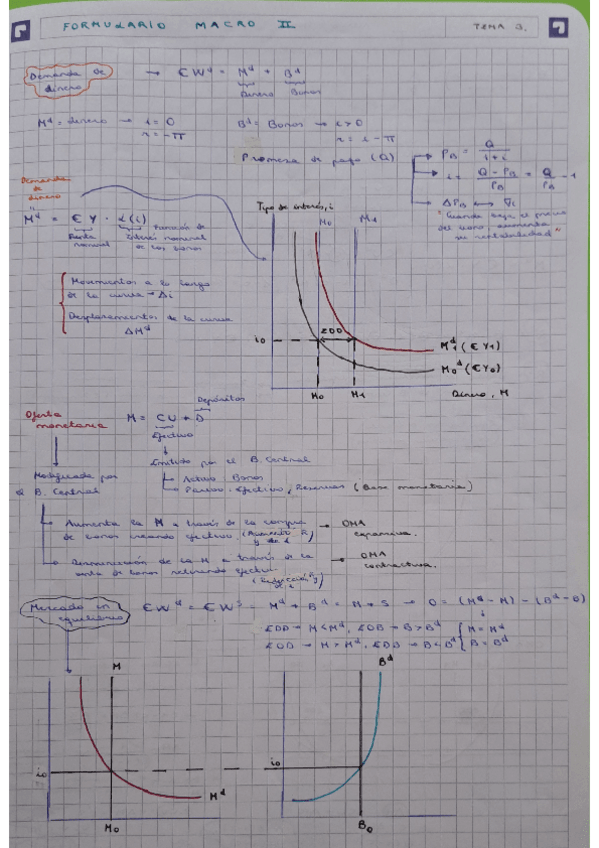 FORMULARIO MACRO II
TEMA 3.
Demanda de dinero → €W^d = M^d + B^d
Dinero Bonos
M^d = dinero → i = 0
r = -π
B^d = Bonos → i > 0
r = i - π
Promesa de pago (Q)
P_B = Q / 1 + i
i = Q - P_B / P_B = Q / P_B - 1
ΔP_B ↔ ∇i
"Cuando baja el precio
del bono, aumenta
su rentabilidad"
Demanda
de
dinero
M^d = €Y · L(i)
Renta
nominal
Función de
interés nominal
de los bonos
Movimientos a lo largo
de la curva → Δi
Desplazamientos de la curva
ΔM^d
Tipo de interés, i
M0 M1
EDD
i0
M1^d (€Y1)
M0^d (€Y0)
M0 M1 Dinero, M
Oferta
monetaria
M = CU + D
Depósitos
Efectivo
Emitido por el B. Central
Activo: Bonos
Pasivo: Efectivo, Reservas (Base monetaria)
Modificada por
el B. Central
Aumenta la M a través de la compra
de bonos creando efectivo.
→ OMA
expansiva.
Disminución de la M a través de la
venta de bonos retirando efectivo
→ OMA
contractiva.
Mercado en
equilibrio
€W^d = €W^s = M^d + B^d = M + B → 0 = (M^d - M) - (B^d - B)
EDD → M < M^d, EOB → B > B^d
EOD → M > M^d, EDB → B < B^d
M = M^d
B = B^d
M
i0
M^d
M0
B^d
i0
B0